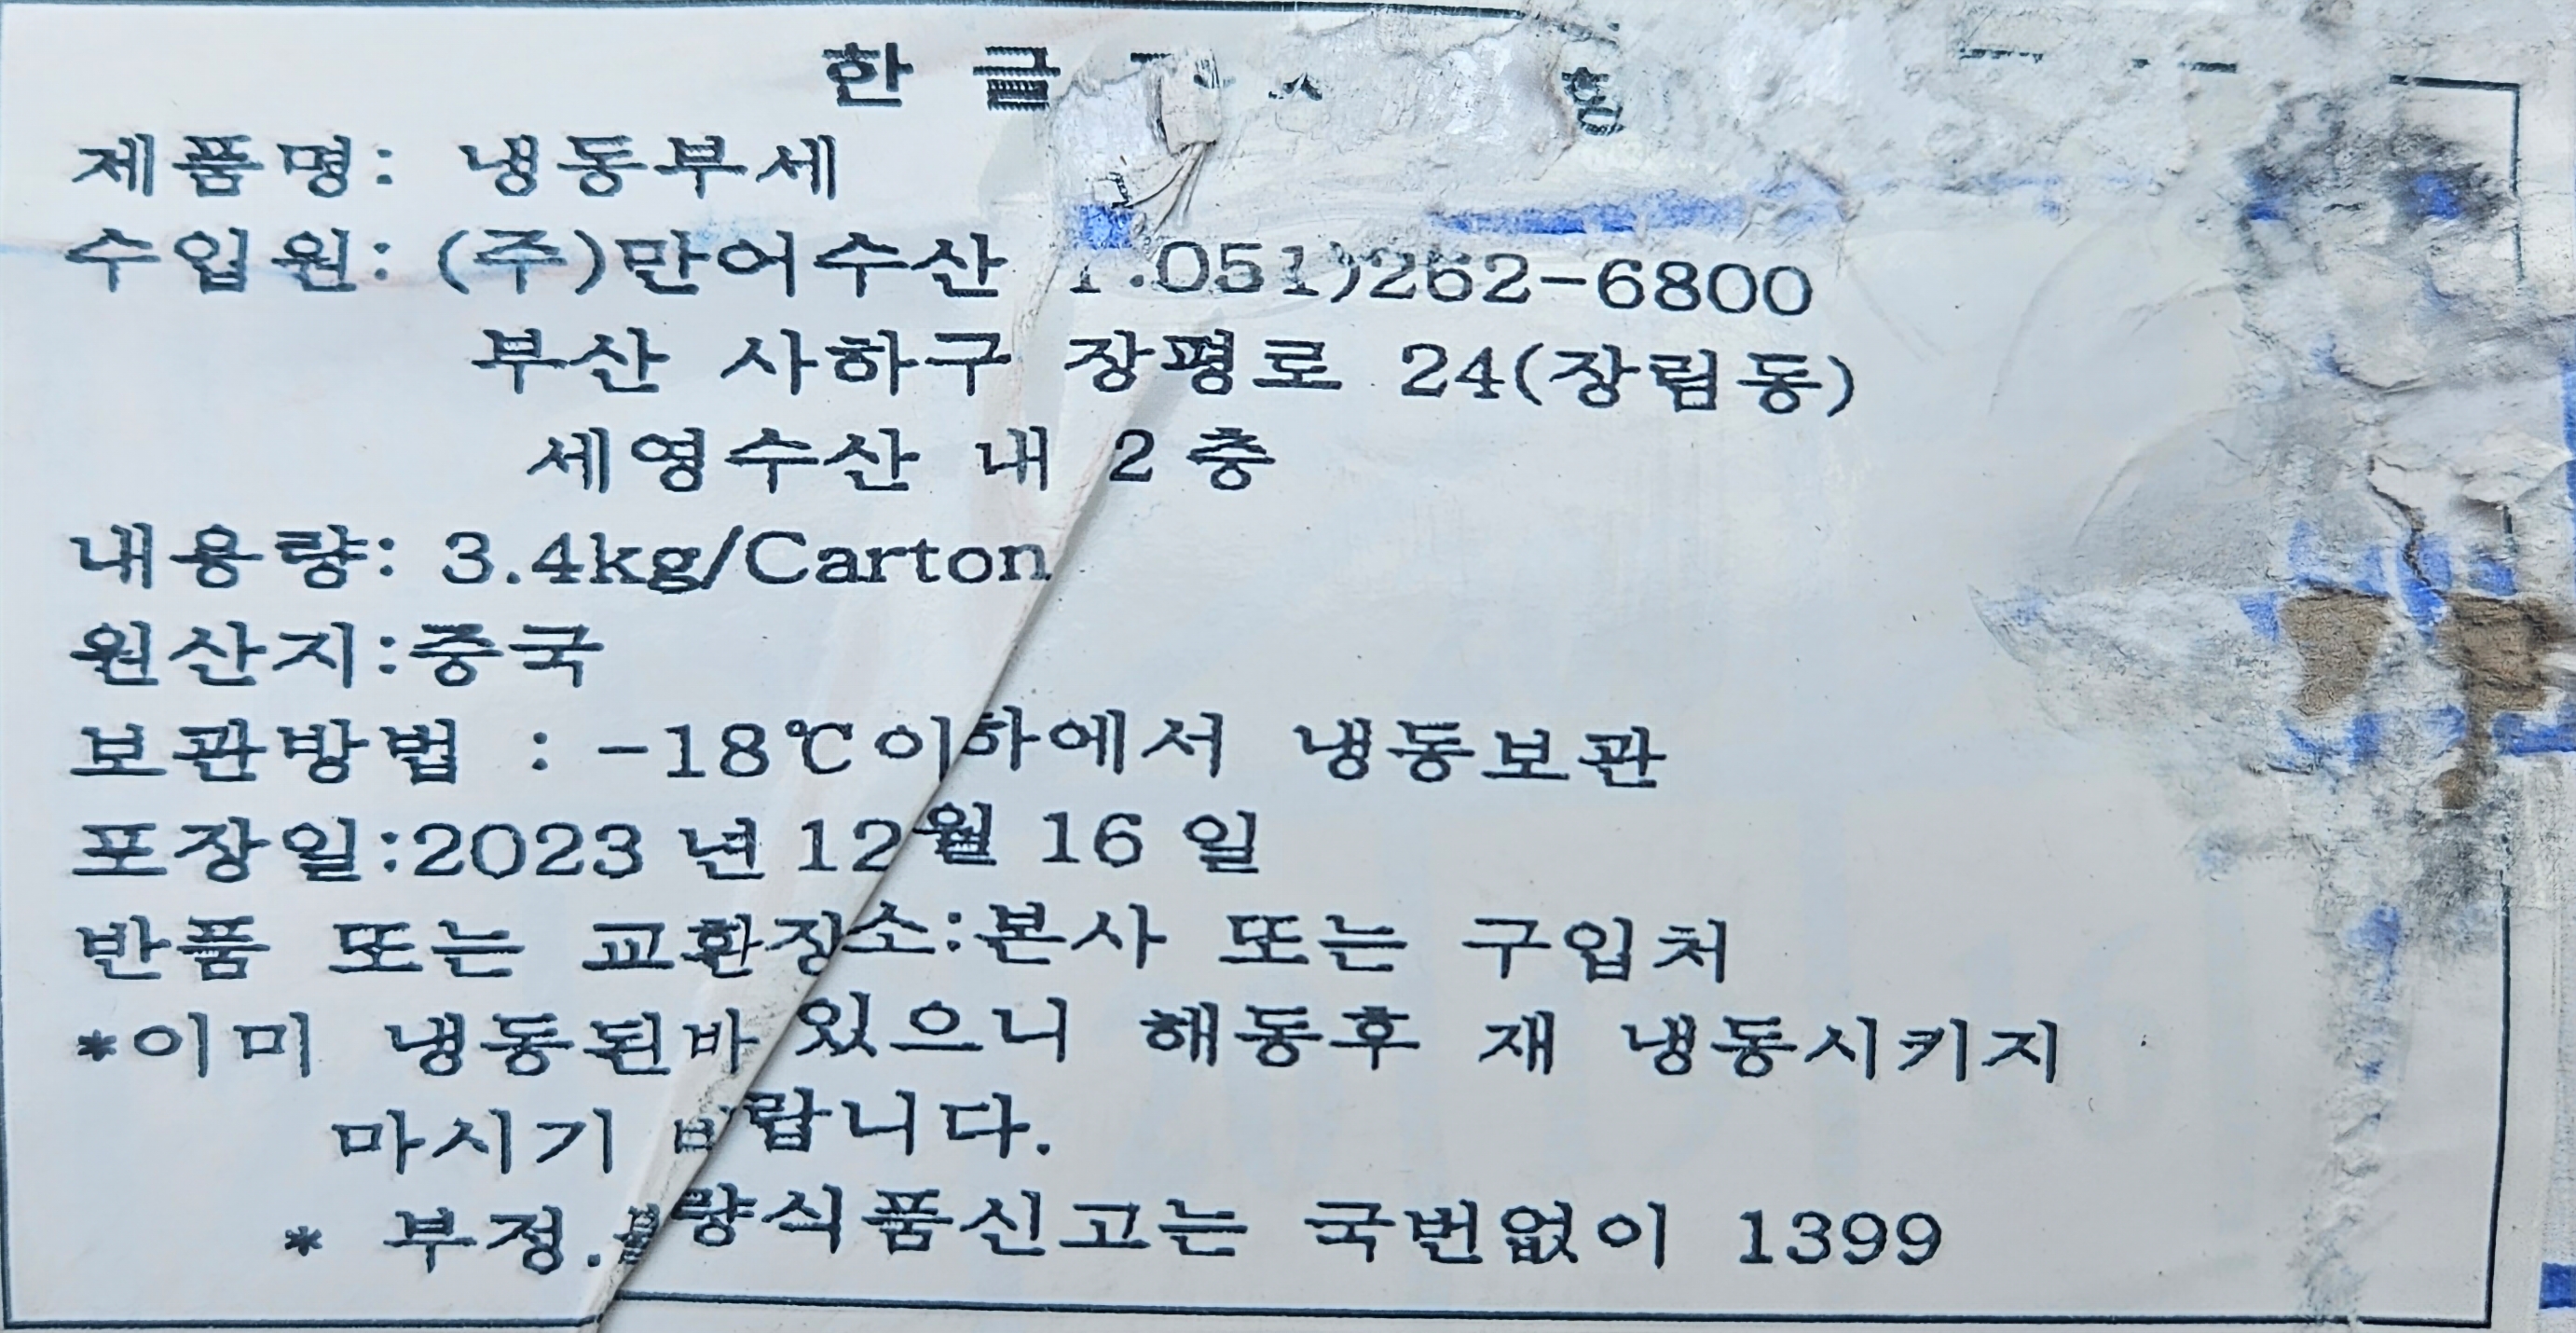 한 글
제품명: 냉동부세
수입원: (주)만어수산 T.051)262-6800
부산 사하구 장평로 24(장림동)
세영수산 내 2층
내용량: 3.4kg/Carton
원산지:중국
보관방법 : -18℃이하에서 냉동보관
포장일:2023년 12월 16일
반품 또는 교환장소:본사 또는 구입처
*이미 냉동된바 있으니 해동후 재 냉동시키지
마시기 바랍니다.
* 부정.불량식품신고는 국번없이 1399